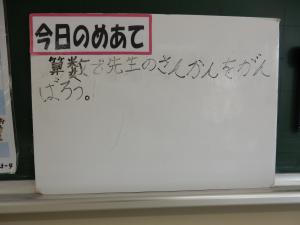 今日のめあて
算数で先生のさんかんをがん
ばろう。